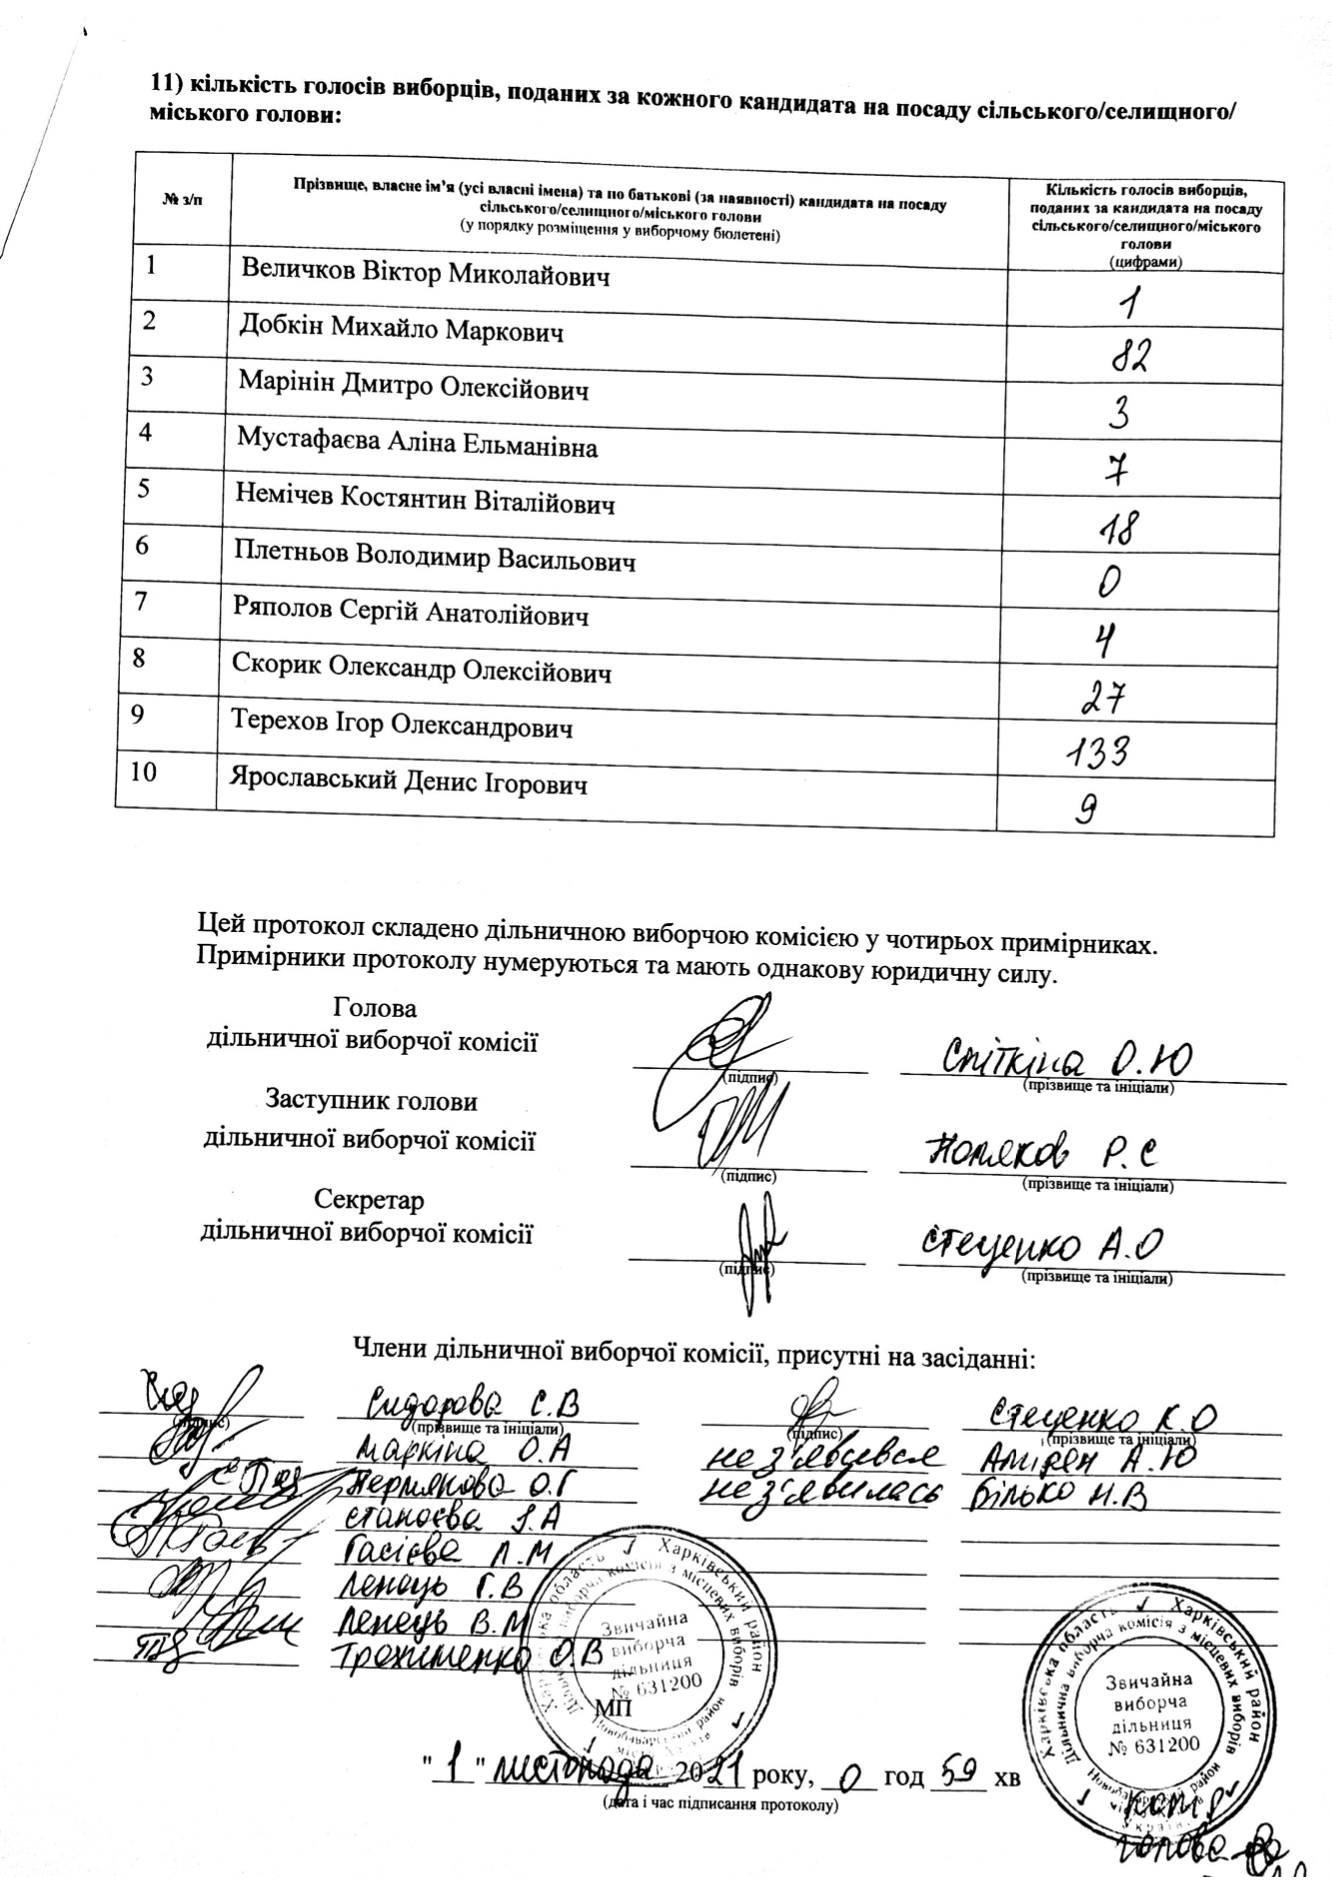 11) кількість голосів виборців, поданих за кожного кандидата на посаду сільського/селищного/
міського голови:
№ з/п
Прізвище, власне ім’я (усі власні імена) та по батькові (за наявності) кандидата на посаду
сільського/селищного/міського голови
(у порядку розміщення у виборчому бюлетені)
Кількість голосів виборців,
поданих за кандидата на посаду
сільського/селищного/міського
голови
(цифрами)
1 Величков Віктор Миколайович 1
2 Добкін Михайло Маркович 82
3 Марінін Дмитро Олексійович 3
4 Мустафаєва Аліна Ельманівна 7
5 Немічев Костянтин Віталійович 18
6 Плетньов Володимир Васильович 0
7 Ряполов Сергій Анатолійович 4
8 Скорик Олександр Олексійович 27
9 Терехов Ігор Олександрович 133
10 Ярославський Денис Ігорович 9
Цей протокол складено дільничною виборчою комісією у чотирьох примірниках.
Примірники протоколу нумеруються та мають однакову юридичну силу.
Голова
дільничної виборчої комісії
Спіткіна О.Ю
(підпис) (прізвище та ініціали)
Заступник голови
дільничної виборчої комісії
Поляков Р.С
(підпис) (прізвище та ініціали)
Секретар
дільничної виборчої комісії
Стеценко А.О
(підпис) (прізвище та ініціали)
Члени дільничної виборчої комісії, присутні на засіданні:
Сидорова С.В Стеценко К.О
(підпис) (прізвище та ініціали) (підпис) (прізвище та ініціали)
Маркіна О.А не з'явився А.Ю
Пермякова О.Г не з'явилась Білько Н.В
І.А
Гасієва Л.М
Лепець Г.В
Лепець В.М
Трохименко О.В
Харківська область Харківський район
Дільнична виборча комісія з місцевих виборів
Звичайна
виборча
дільниця
№ 631200
Новобаварський район
МП
Харківська область Харківський район
Дільнична виборча комісія з місцевих виборів
Звичайна
виборча
дільниця
№ 631200
Україна
"1" листопада 2021 року, 0 год 59 хв
(дата і час підписання протоколу)
Копія
голова